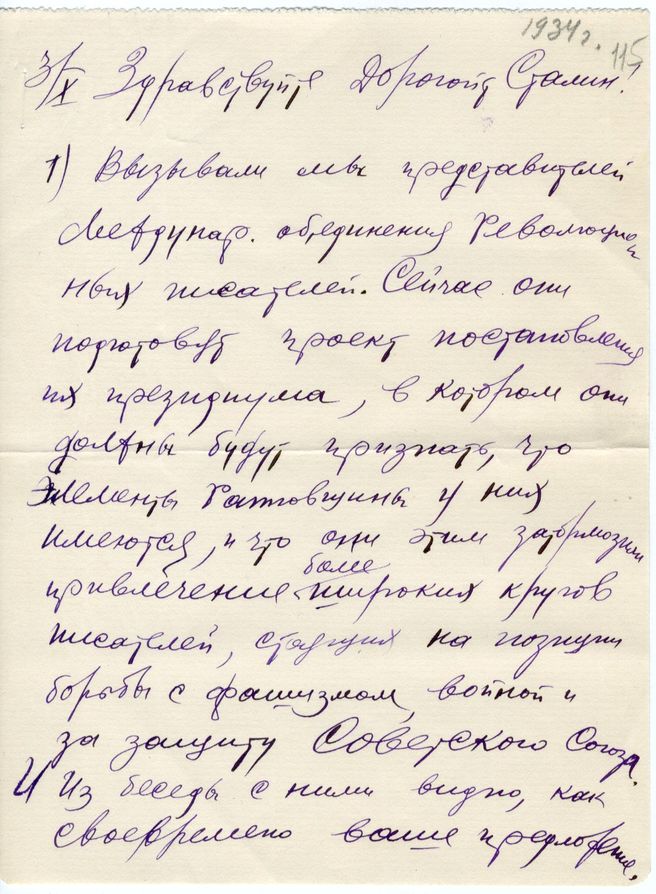 1934 г. 115
3/X Здравствуйте Дорогой т Сталин!
1) Вызывали мы представителей
Междунар. объединения Революцион
ных писателей. Сейчас они
подготовят проект постановления
их президиума, в котором они
должны будут признать, что
Элементы Рапповщины у них
имеются, и что они этим затормозили
более
привлечение широких кругов
писателей, стоящих на позиции
борьбы с фашизмом, войной и
за защиту Советского Союза.
Из беседы с ними видно, как
своевремено ваше предложение,